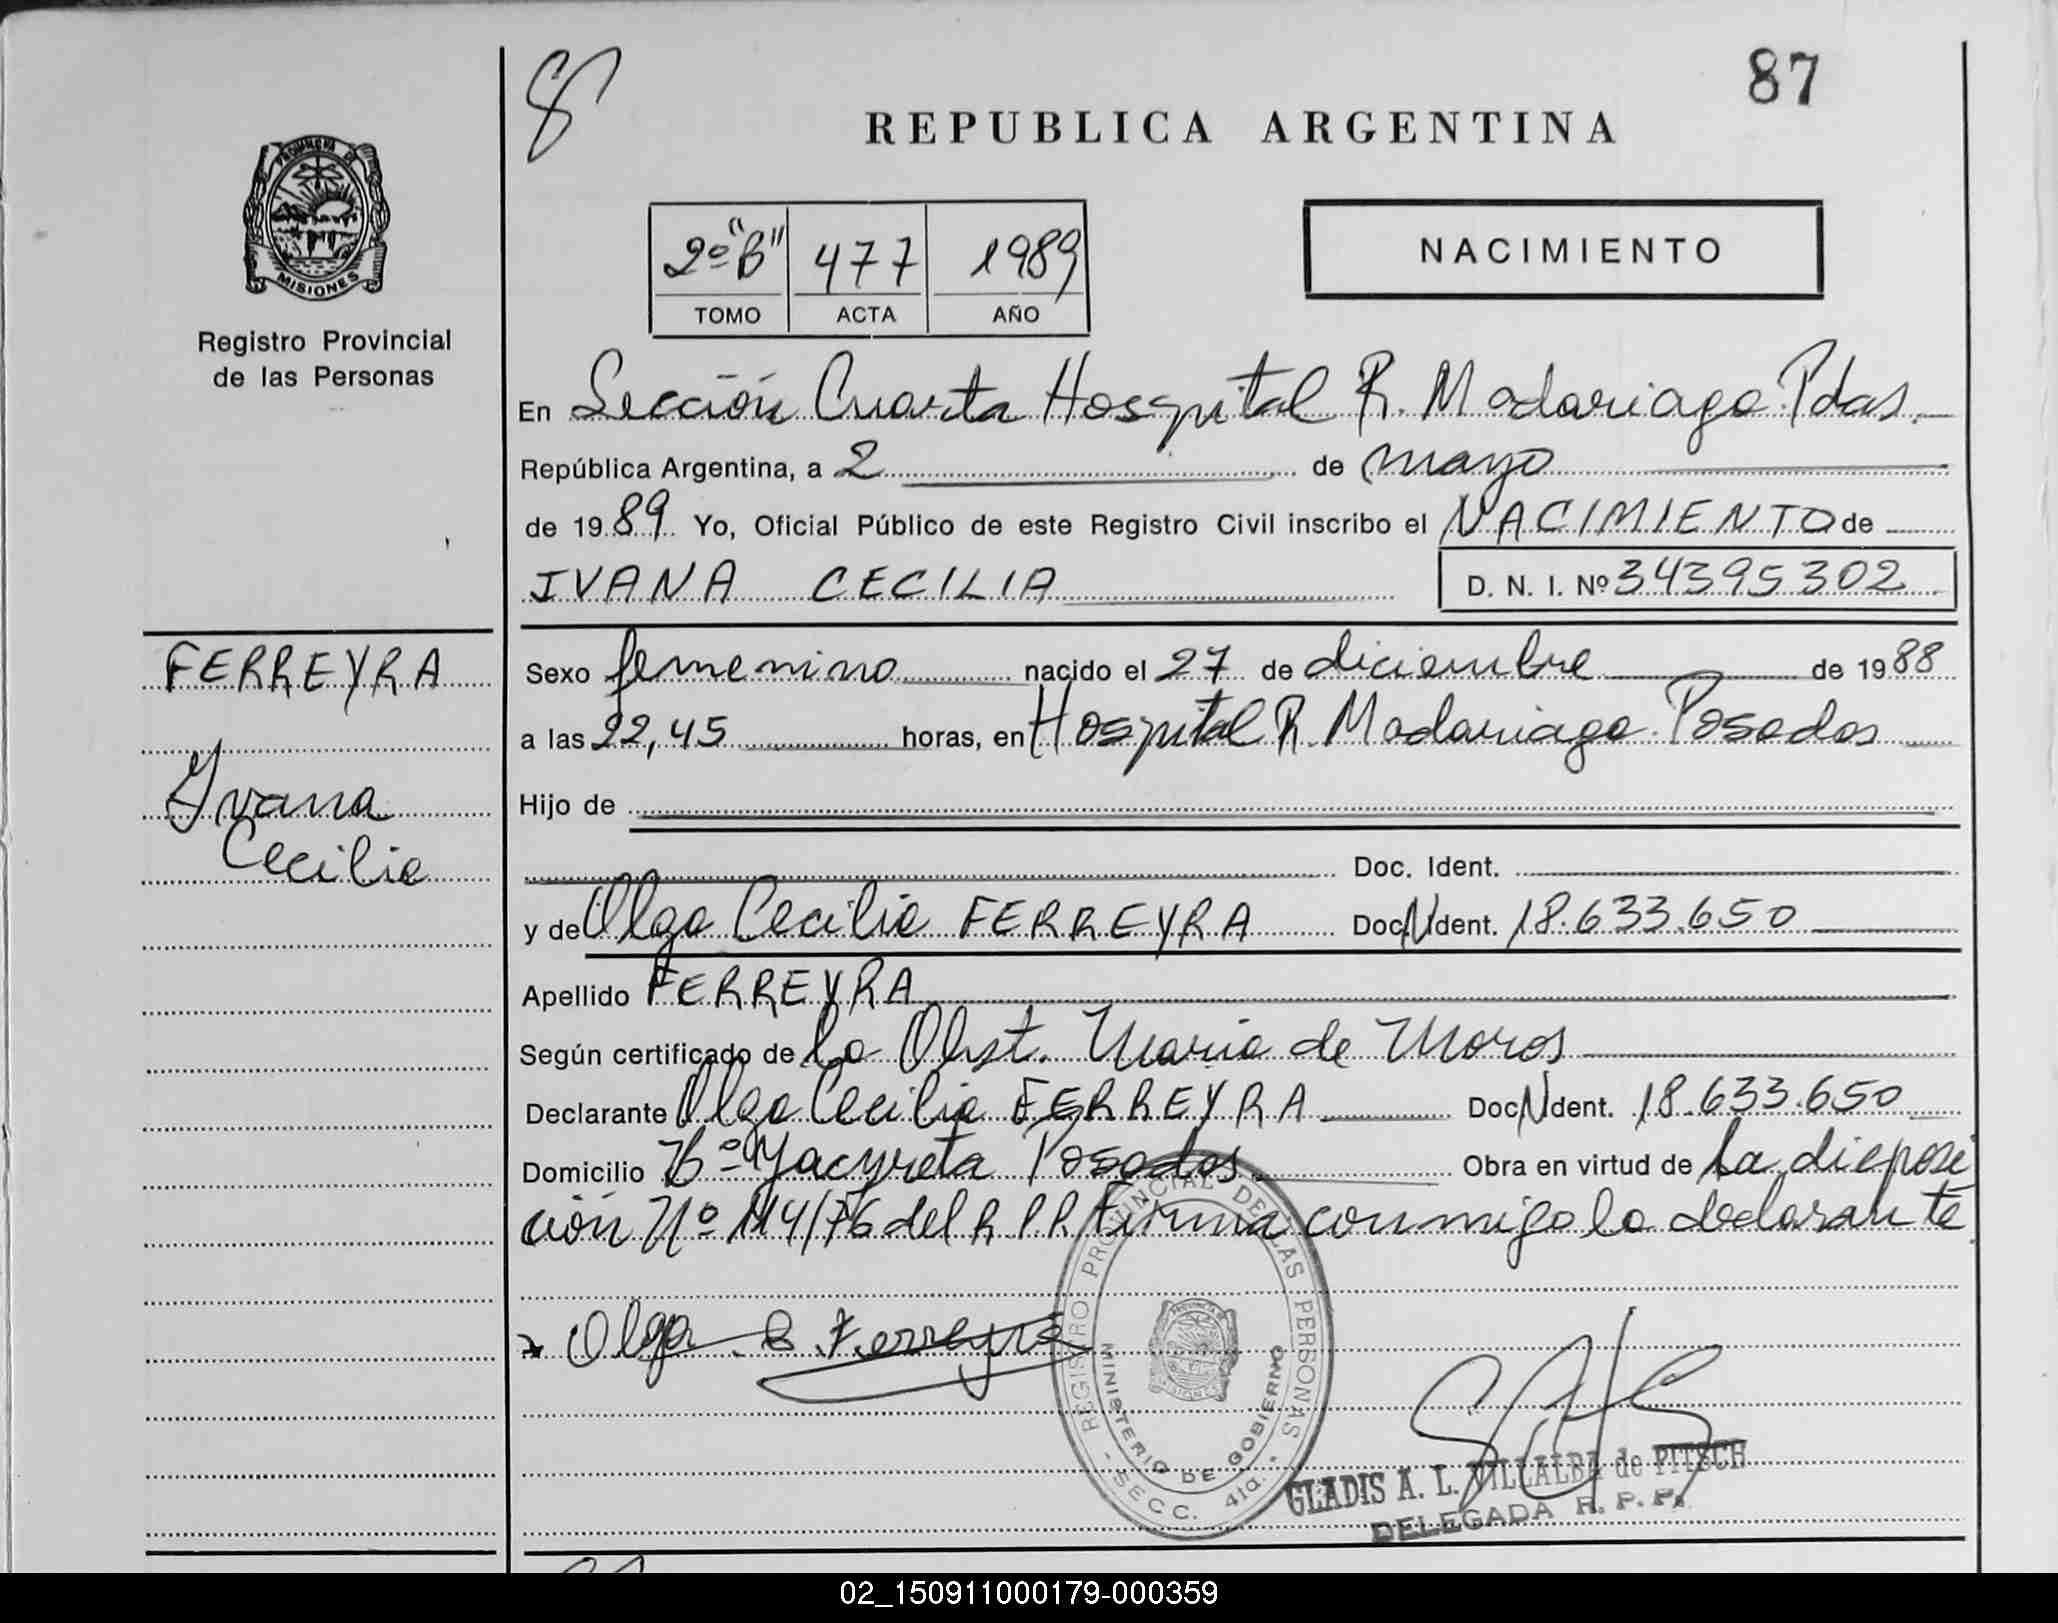 87
8
REPUBLICA ARGENTINA
PROVINCIA DE
MISIONES
Registro Provincial
de las Personas
2º "B" 477 1989
TOMO ACTA AÑO
NACIMIENTO
En Sección Cuarta Hospital R. Madariaga Pdas.
República Argentina, a 2 de mayo
de 1989 Yo, Oficial Público de este Registro Civil inscribo el NACIMIENTO de
IVANA CECILIA D. N. I. Nº 34395302
FERREYRA
Ivana
Cecilia
Sexo femenino nacido el 27 de diciembre de 1988
a las 22,45 horas, en Hospital R. Madariaga Posadas
Hijo de
Doc. Ident.
y de Olga Cecilia FERREYRA Doc. N Ident. 18.633.650
Apellido FERREYRA
Según certificado de la Obst. Maria de Moros
Declarante Olga Cecilia FERREYRA Doc. N Ident. 18.633.650
Domicilio Bº Yacyreta Posadas Obra en virtud de la disposi
ción Nº 114/76 del R.P.P. Firma conmigo la declarante
Olga C. Ferreyra
REGISTRO PROVINCIAL DE LAS PERSONAS
MINISTERIO DE GOBIERNO
- SECC. 41a. -
GLADIS A. L. VILLALBA de PITSCH
DELEGADA R. P. P.
02_150911000179-000359